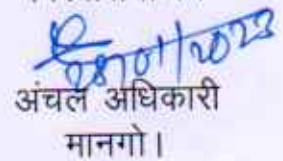 28/01/2023
अंचल अधिकारी
मानगो।